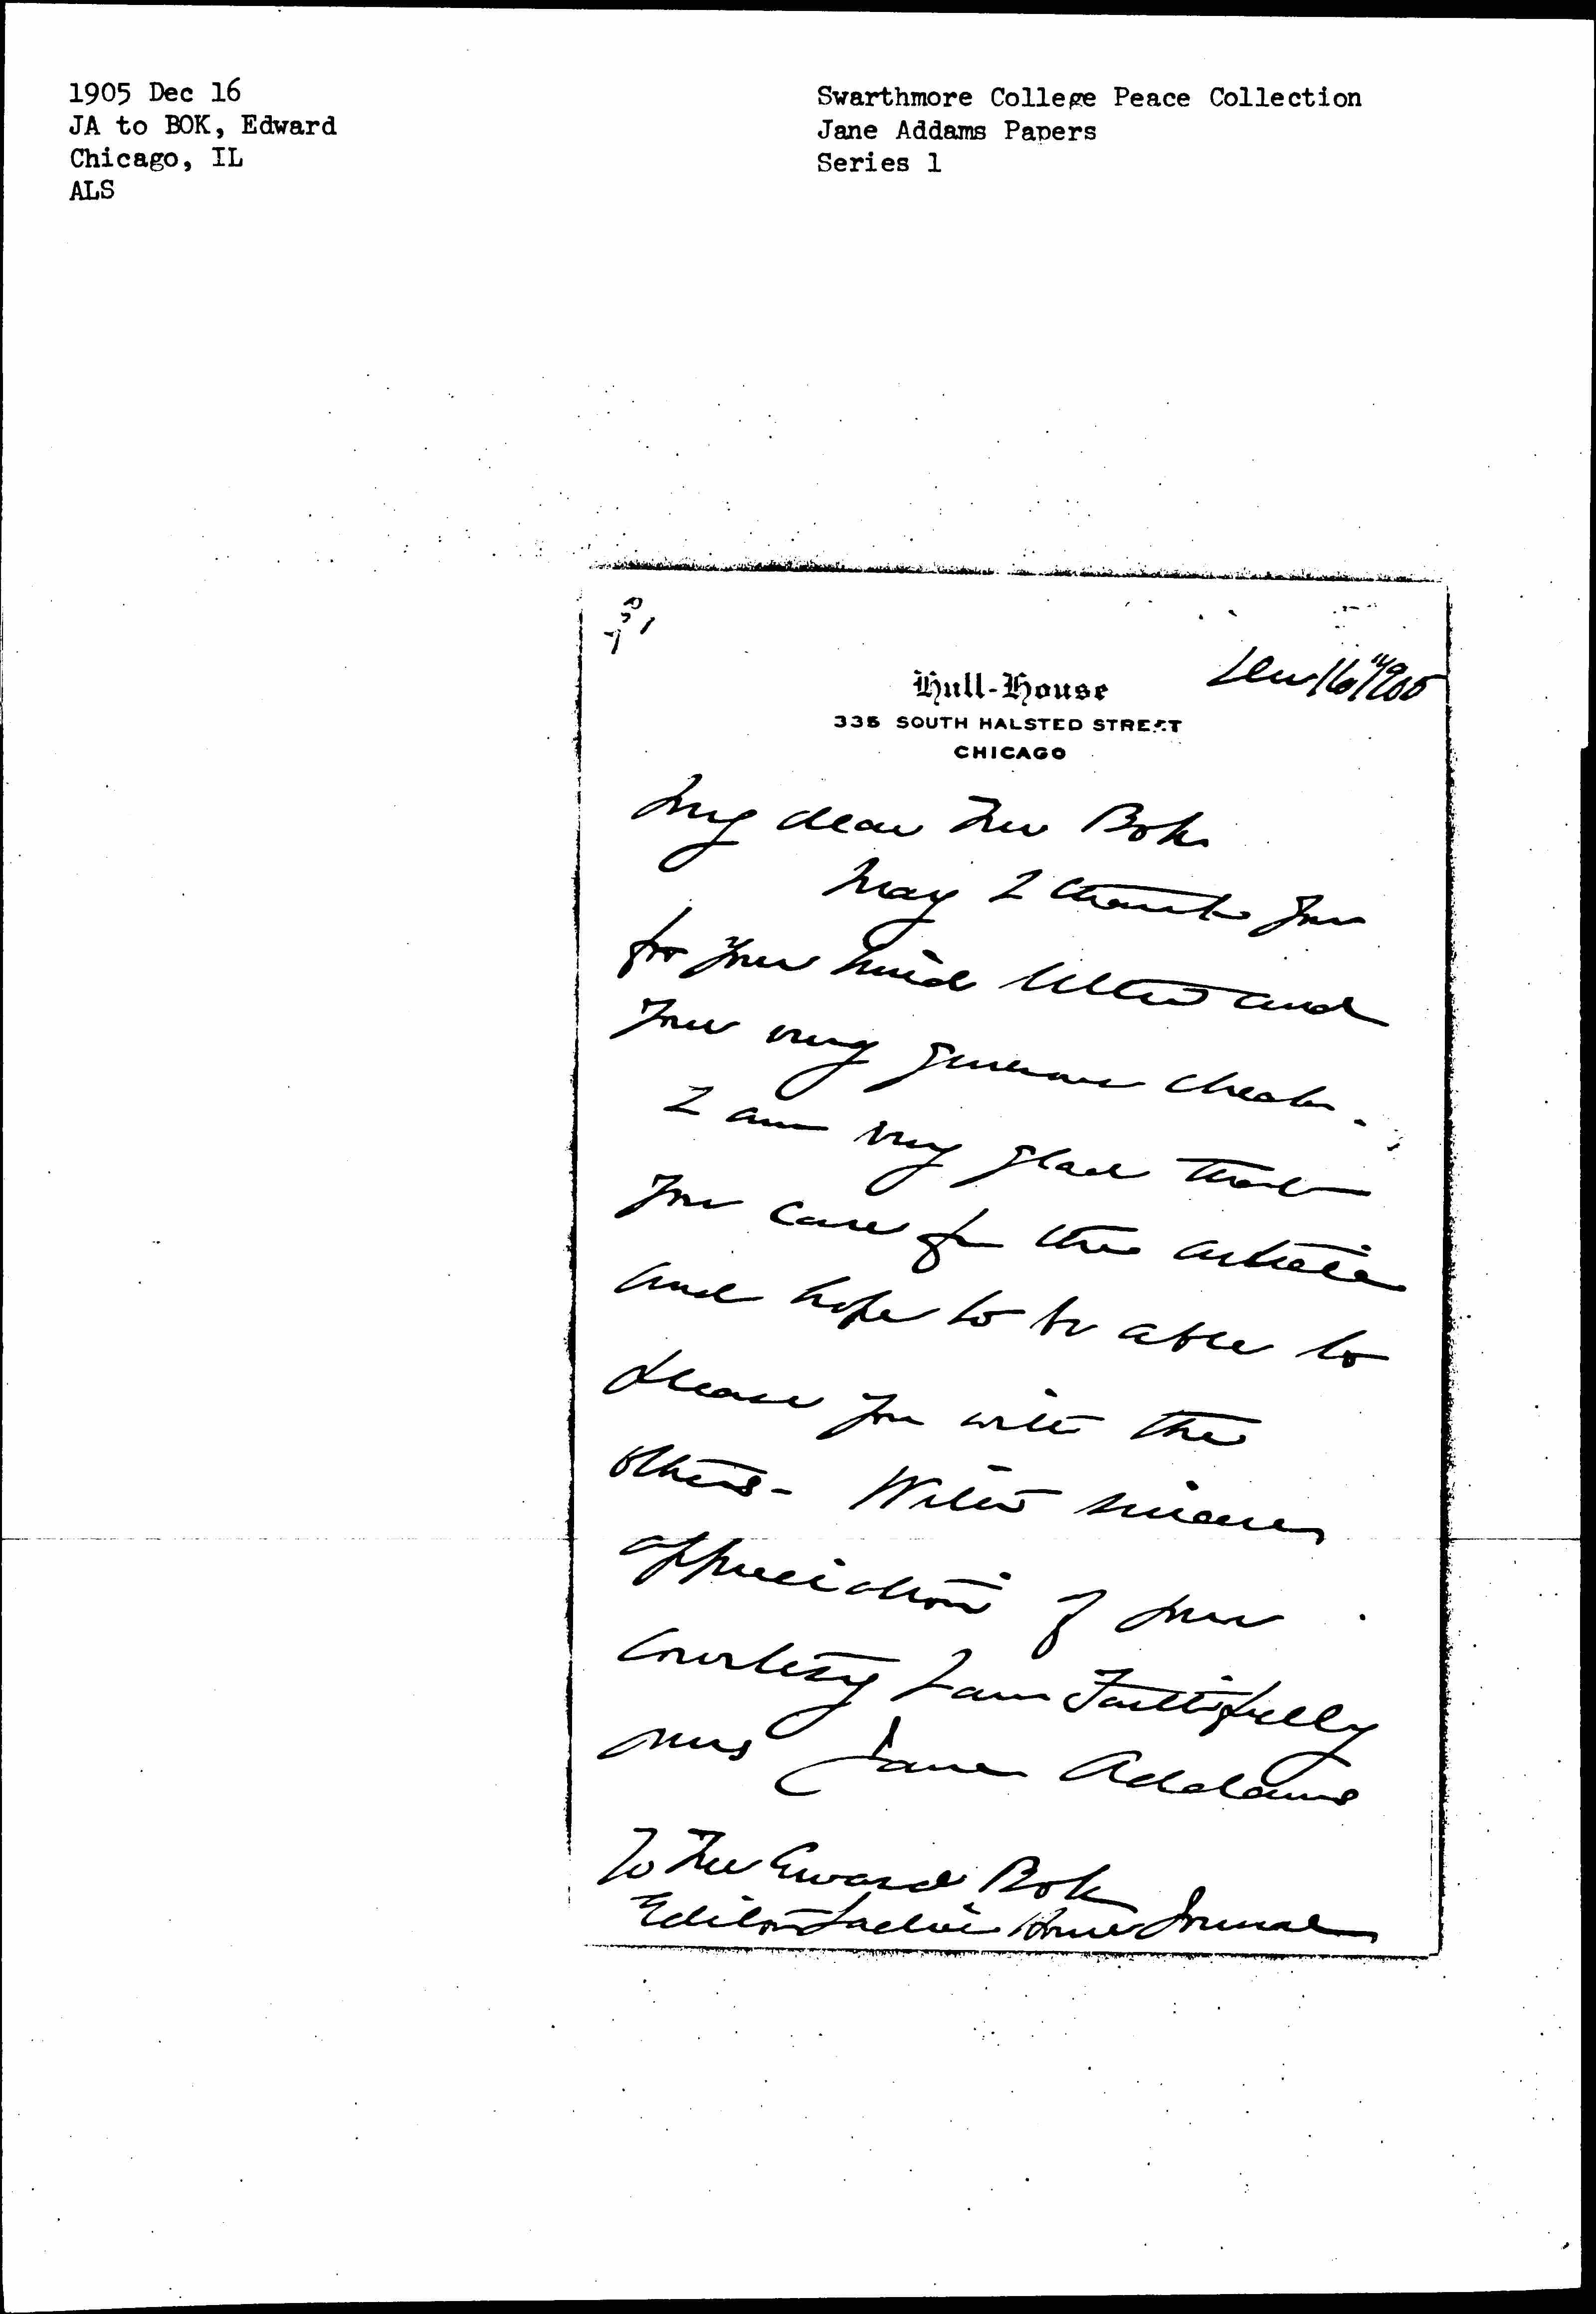 1905 Dec 16
JA to BOK, Edward
Chicago, IL
ALS
Swarthmore College Peace Collection
Jane Addams Papers
Series 1
Dec 16" 1905
Hull-House
335 SOUTH HALSTED STREET
CHICAGO
My dear Mr Bok
May I thank you
for your kind letter and
your very generous check.
I am very glad that
you care for the article
and hope to be able to
please you with the
others - With sincere
appreciation of your
courtesy I am Faithfully
yours Jane Addams
To Mr Edward Bok
Editor Ladies Home Journal